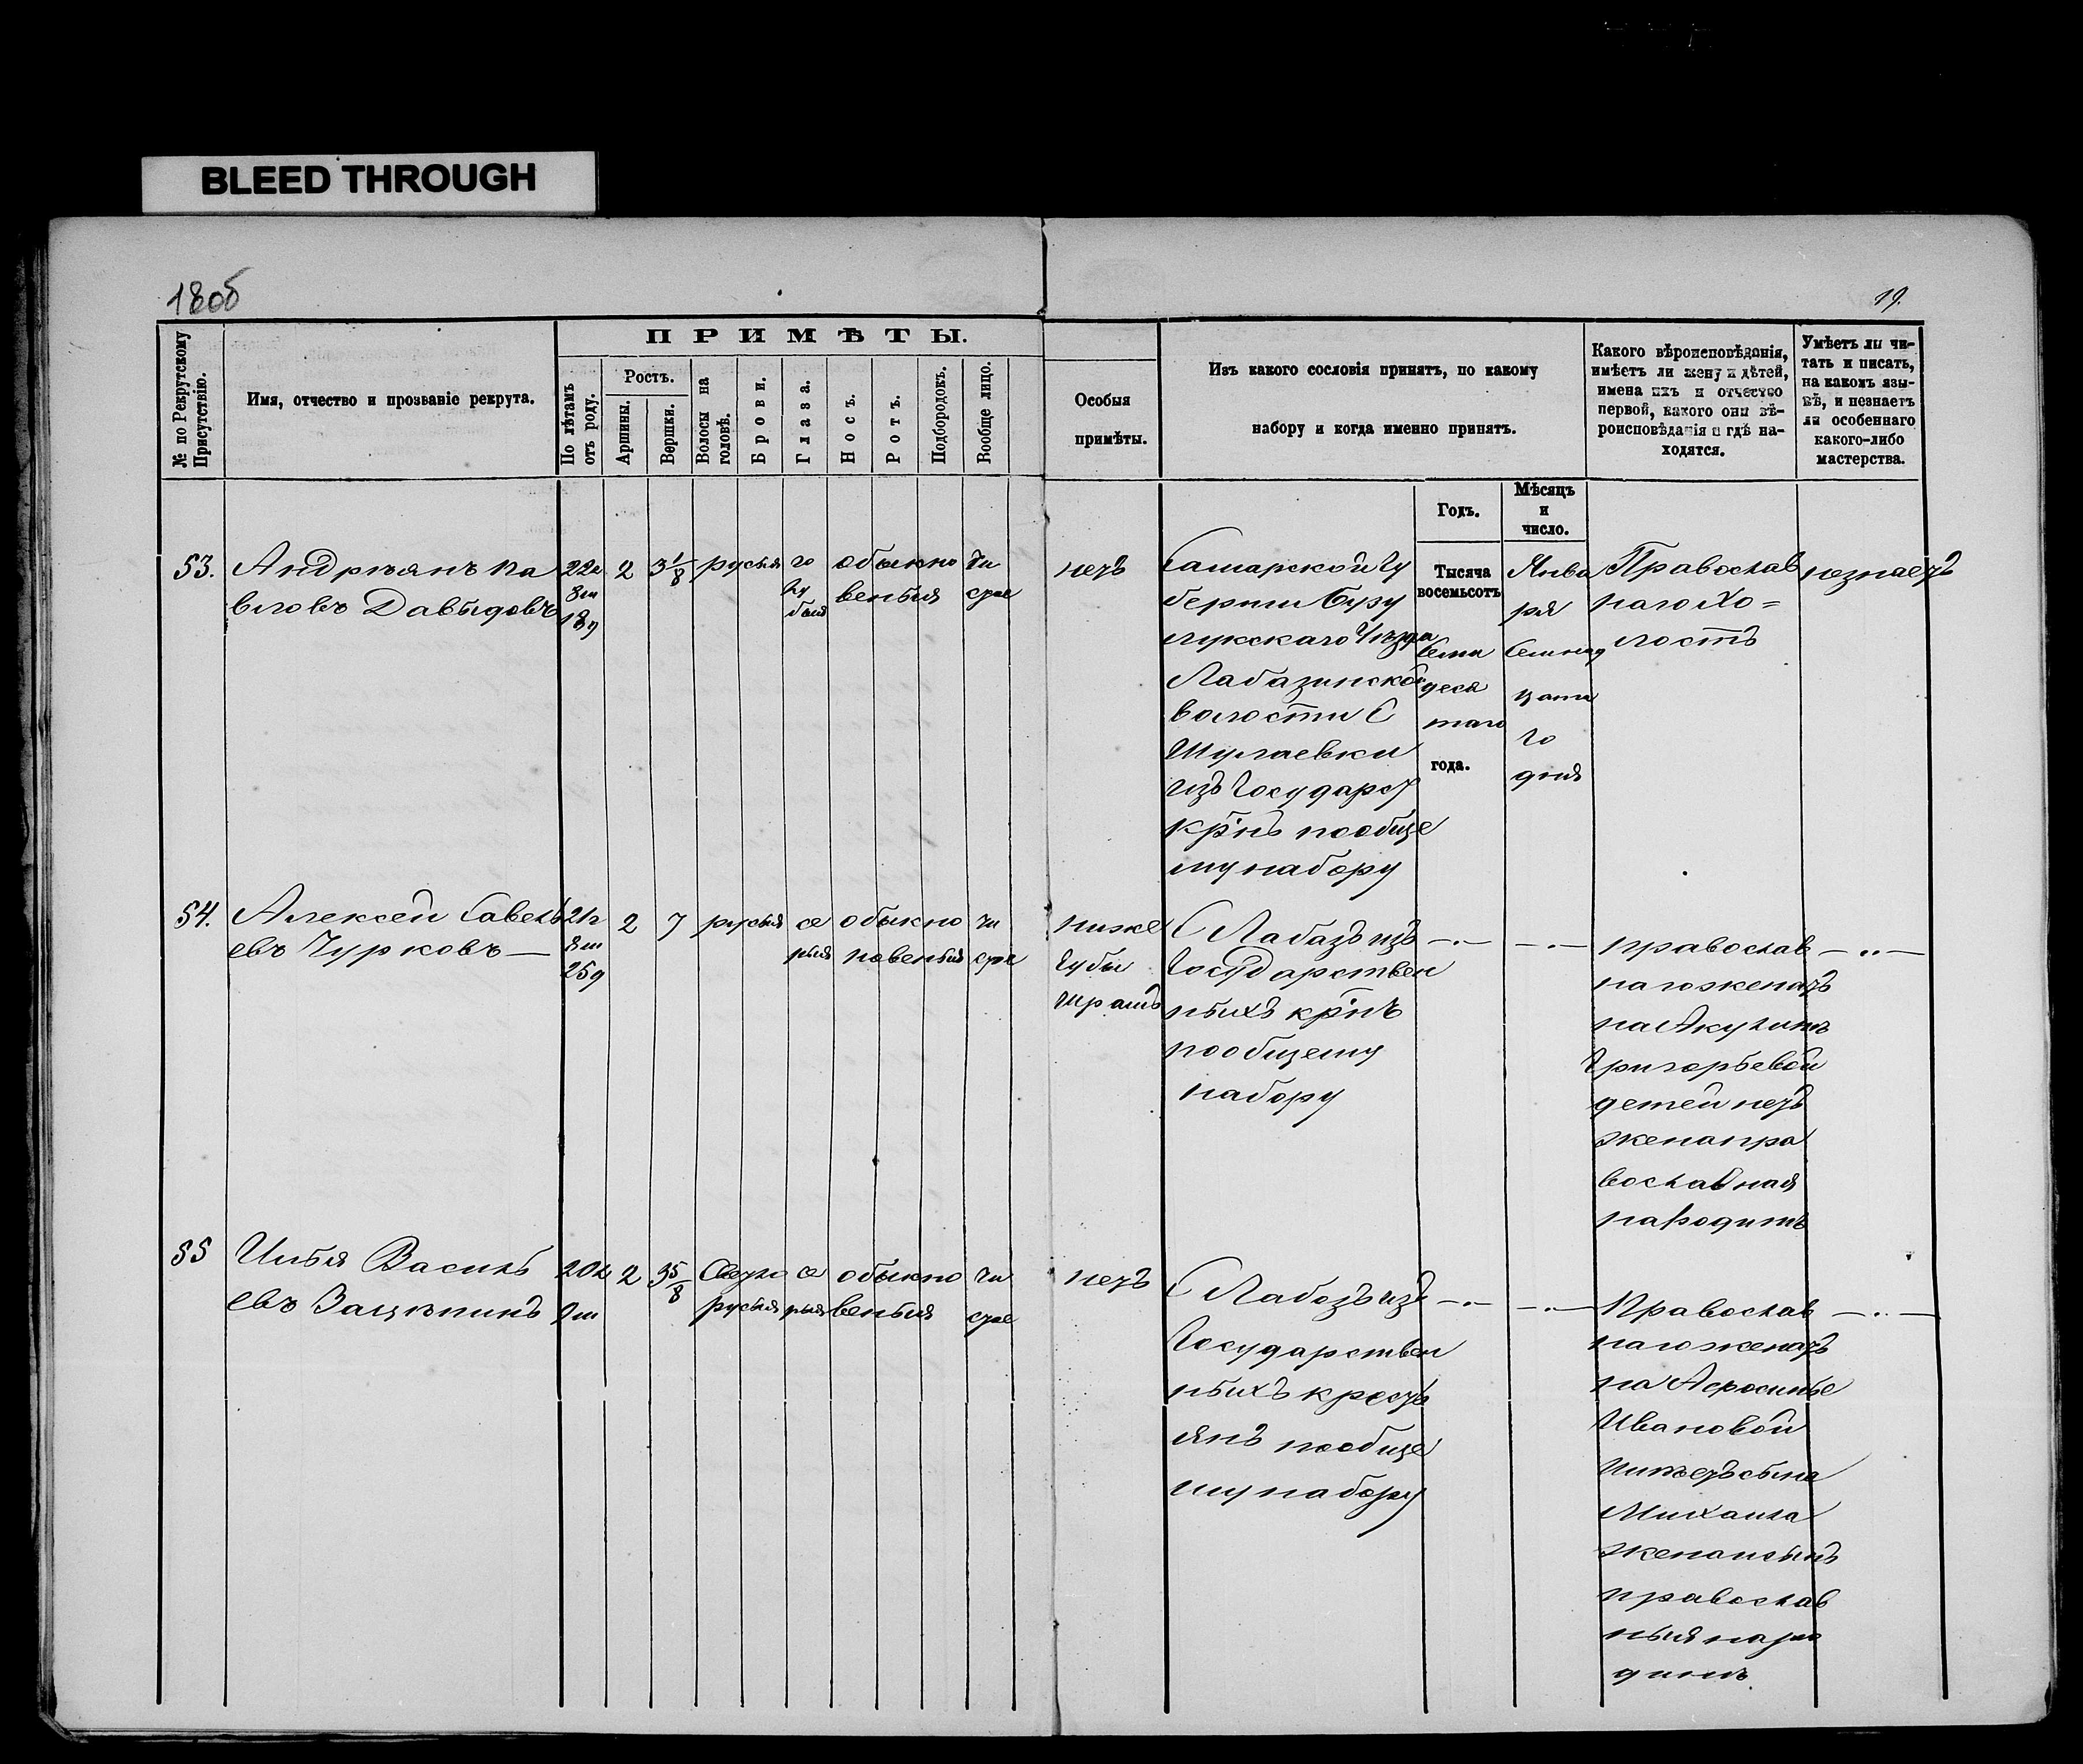 BLEED THROUGH
18об
19.
№ по Рекрутскому Присутствію.
Имя, отчество и прозваніе рекрута.
ПРИМѢТЫ.
По лѣтамъ отъ роду.
Ростъ.
Аршины.
Вершки.
Волосы на головѣ.
Брови.
Глаза.
Носъ.
Ротъ.
Подбородокъ.
Вообще лицо.
Особыя
примѣты.
Изъ какого сословія принятъ, по какому
набору и когда именно принятъ.
Какого вѣроисповѣданія,
имѣетъ ли жену и дѣтей,
имена ихъ и отчество
первой, какого они вѣ-
роисповѣданія и гдѣ на-
ходятся.
Умѣетъ ли чи-
тать и писать,
на какомъ язы-
кѣ, и незнаетъ
ли особеннаго
какого-либо
мастерства.
Годъ.
Мѣсяцъ
и
число.
53.
Андріянъ Па
вловъ Давыдовъ
22л
8м
18д
2
3 1/8
русыя
го
лу
быя
обыкно
веныя
чи
стое
нетъ
Самарской Гу
берніи Бузу
лукскаго Уѣзда
Лабазинской
волости С
Шулаевки
изъ Государст
кр̃нъ пообще
му набору
Тысяча
восемьсотъ
Семи
деся
таго
года.
Янва
ря
Семнад
цата
го
дня
Православ
наго Хо=
лостъ
незнаетъ
54.
Алексей Савель
евъ Чурковъ —
21г
8м
25д
2
7
русыя
се
рыя
обыкно
новеныя
чи
стое
ниже
губы
шрамъ
С Лабазъ изъ
Государствен
ныхъ кр̃нъ
пообщему
набору
—..—
—..—
православ
наго женатъ
на Акулинѣ
Григорьевой
детей нетъ
жена пра
вославная
народинѣ
—..—
55
Илья Василь
евъ Защепинъ
20л
9м
2
3 5/8
Светло
русыя
се
рыя
обыкно
веныя
чи
стое
нетъ
С Лабазъ изъ
Государствен
ныхъ кресть
янъ пообще
му набору
—..—
—..—
Православ
наго женатъ
на Афросинье
Ивановой
имѣетъ сына
Михаила
жена и сынъ
православ
ныя наро
динѣ
—..—